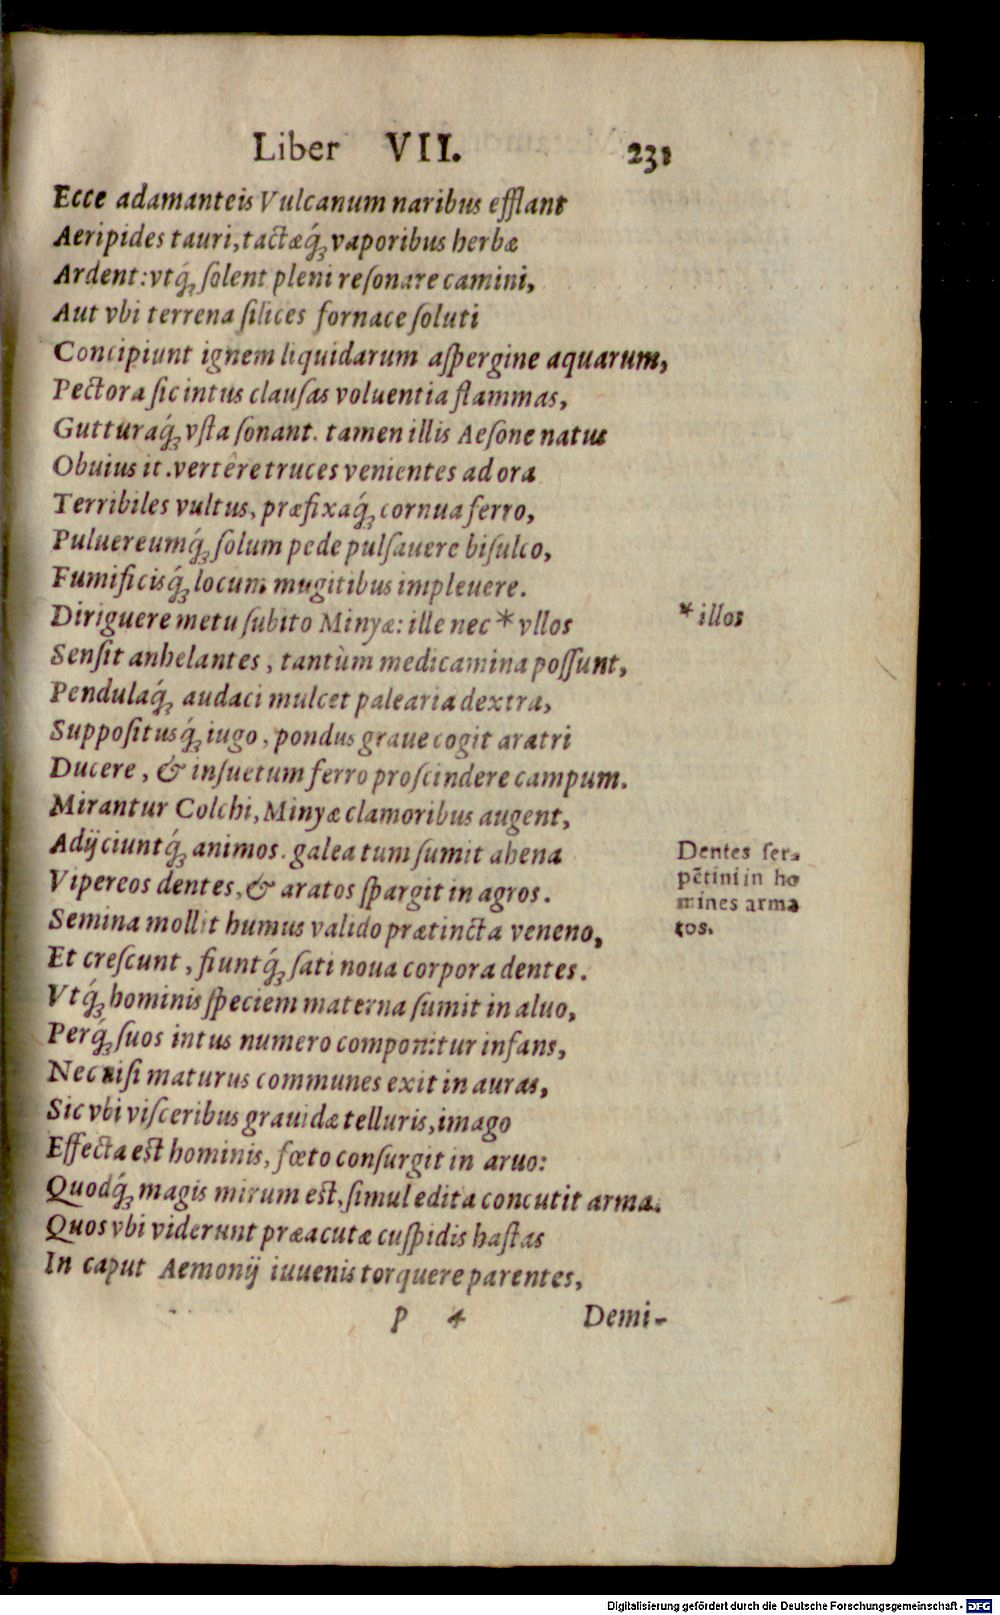 Liber VII. 231
Ecce adamanteis Vulcanum naribus efflant
Aeripides tauri, tactæq́ꝫ vaporibus herbæ
Ardent: vtq́ꝫ ſolent pleni reſonare camini,
Aut vbi terrena ſilices fornace ſoluti
Concipiunt ignem liquidarum aſpergine aquarum,
Pectora ſic intus clauſas voluentia flammas,
Gutturaq́ꝫ vſta ſonant. tamen illis Aeſone natus
Obuius it. vertêre truces venientes ad ora
Terribiles vultus, præfixaq́ꝫ cornua ferro,
Puluereumq́ꝫ ſolum pede pulſauere biſulco,
Fumificisq́ꝫ locum mugitibus impleuere.
Diriguere metu ſubito Minyæ: ille nec * vllos
* illos
Senſit anhelantes, tantùm medicamina poſſunt,
Pendulaq́ꝫ audaci mulcet palearia dextra,
Suppoſitusq́ꝫ iugo, pondus graue cogit aratri
Ducere, & inſuetum ferro proſcindere campum.
Mirantur Colchi, Minyæ clamoribus augent,
Adijciuntq́ꝫ animos. galea tum ſumit ahena
Vipereos dentes, & aratos ſpargit in agros.
Dentes ſer-
pẽtini in ho
mines arma
tos.
Semina mollit humus valido prætincta veneno,
Et creſcunt, fiuntq́ꝫ ſati noua corpora dentes.
Vtq́ꝫ hominis ſpeciem materna ſumit in aluo,
Perq́ꝫ ſuos intus numero componitur infans,
Nec niſi maturus communes exit in auras,
Sic vbi viſceribus grauidæ telluris, imago
Effecta est hominis, fœto conſurgit in aruo:
Quodq́ꝫ magis mirum est, ſimul edita concutit arma.
Quos vbi viderunt præacutæ cuſpidis haſtas
In caput Aemonij iuuenis torquere parentes,
P 4 Demi-
Digitalisierung gefördert durch die Deutsche Forschungsgemeinschaft - DFG